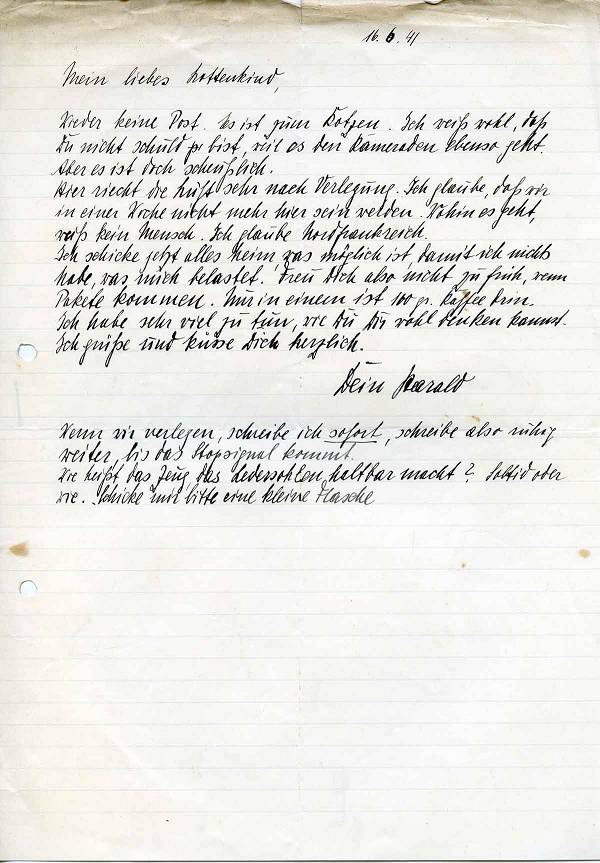 16.6.41
Mein liebes Lottenkind,
Wieder keine Post. Es ist zum Kotzen. Ich weiß wohl, daß
Du nicht schuld bist, weil es den Kameraden ebenso geht.
Aber es ist doch scheußlich.
Hier riecht die Luft sehr nach Verlegung. Ich glaube, daß wir
in einer Woche nicht mehr hier sein werden. Wohin es geht,
weiß kein Mensch. Ich glaube Nordfrankreich.
Ich schicke jetzt alles heim was möglich ist, damit ich nichts
habe, was mich belastet. Freu Dich also nicht zu früh, wenn
Pakete kommen. Nur in einem ist 100 gr. Kaffee drin.
Ich habe sehr viel zu tun, wie Du Dir wohl denken kannst.
Ich grüße und küsse Dich herzlich.
Dein Harald
Wenn wir verlegen, schreibe ich sofort, schreibe also ruhig
weiter, bis das Stopsignal kommt.
Wie heißt das Zeug das Ledersohlen haltbar macht? Soltid oder
wie. Schicke mir bitte eine kleine Flasche